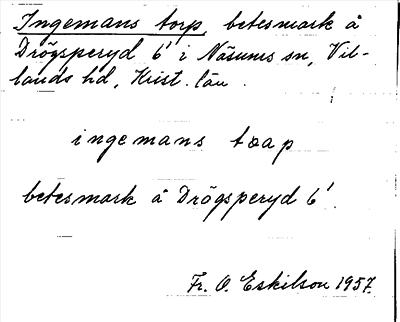 Ingemans torp, betesmark å
Drögsperyd 6¹ i Näsums sn, Vil-
lands hd, Krist. län.
ingemans toap
betesmark å Drögsperyd 6¹.
Fr. O. Eskilson 1957.